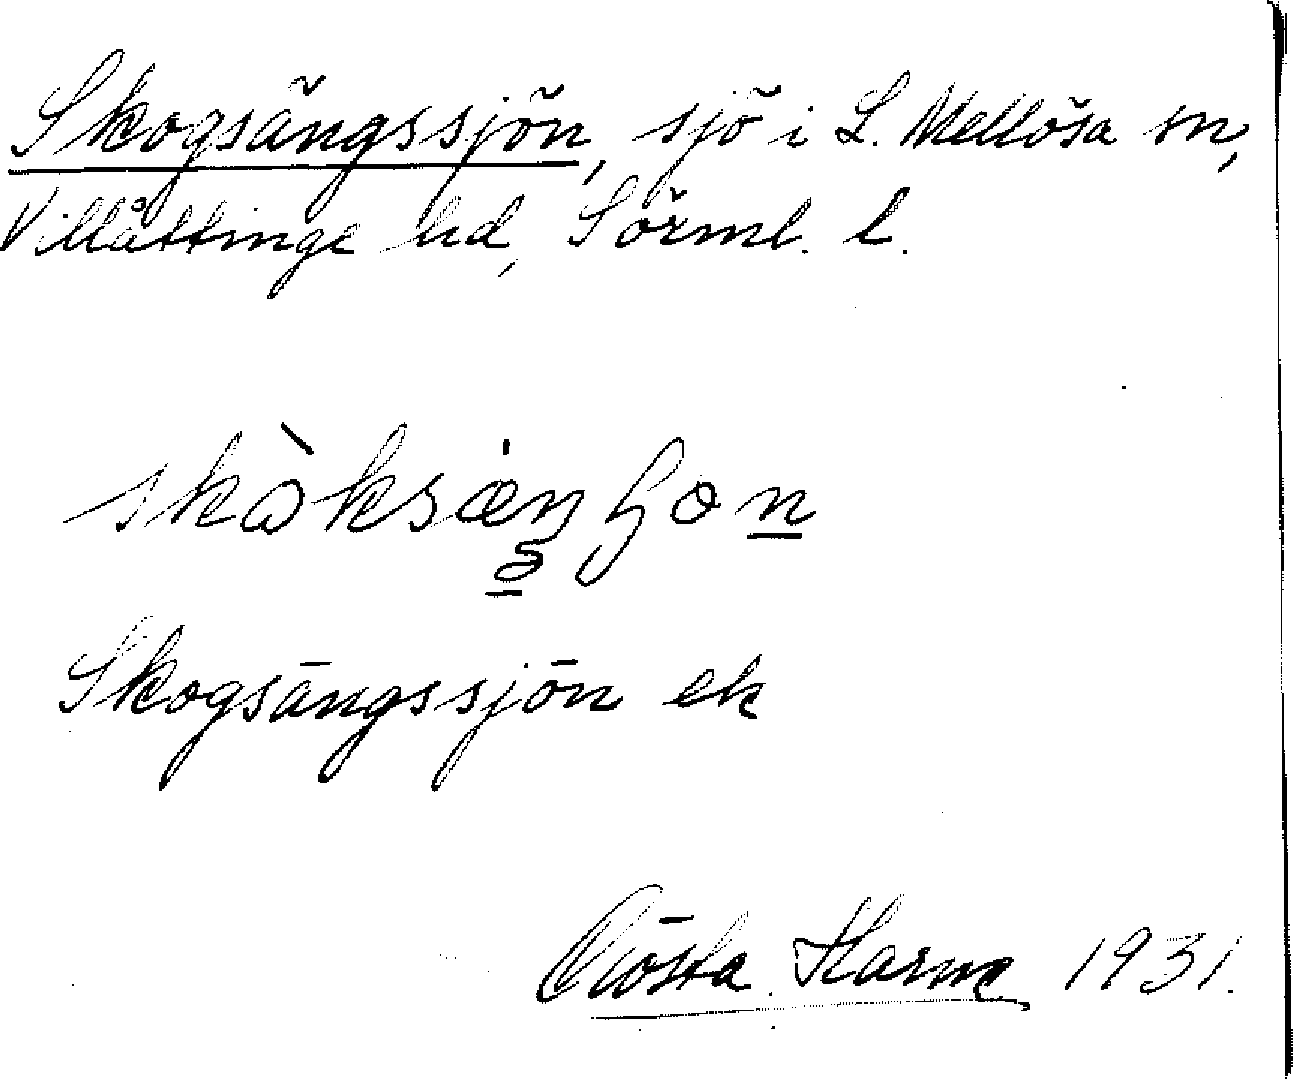 Skogsängssjön, sjö i L. Mellösa sn,
Villåttinge hd, Sörml. l.
Skogsängssjön ek
Gösta Harme 1931.